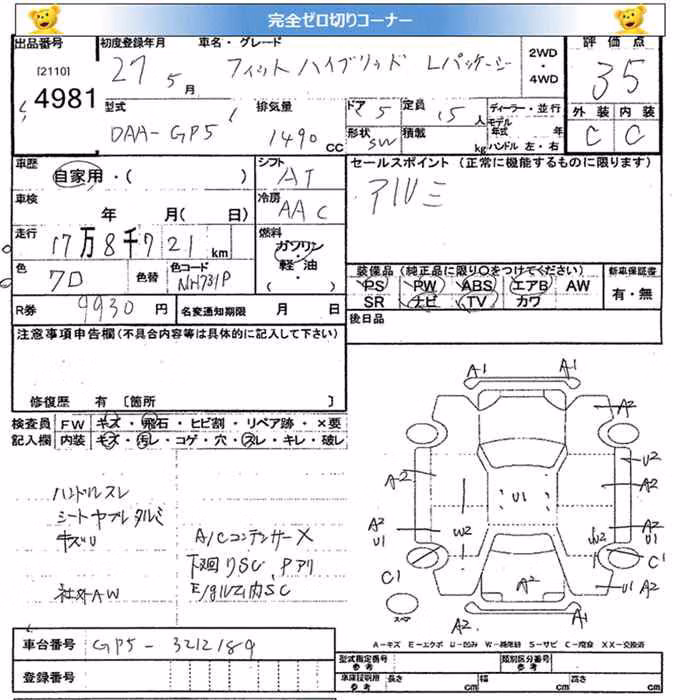 完全ゼロ切りコーナー
出品番号 [2110] 4981
初度登録年月 27 5月
車名・グレード フィットハイブリッド Lパッケージ
2WD・4WD
評価点 3.5
型式 DAA-GP5
排気量 1490 CC
ドア 5 定員 5人
形状 SW 積載 kg
ディーラー・並行
モデル年式 年
ハンドル 左・右
外装 内装
C C
車歴 自家用・( )
シフト AT
セールスポイント (正常に機能するものに限ります)
アルミ
車検 年 月(日)
冷房 AAC
走行 17万8千721km
燃料 ガソリン・軽油
色 クロ 色替 色コード NH731P
装備品 (純正品に限り○をつけてください) 新車保証書
PS PW ABS エアB AW 有・無
SR ナビ TV カワ
R券 9930円 名変通知期限 月 日
後日品
注意事項申告欄(不具合内容等は具体的に記入して下さい)
修復歴 有 〔箇所 〕
検査員 FW キズ・飛石・ヒビ割・リペア跡・×要
記入欄 内装 キズ・汚レ・コゲ・穴・スレ・キレ・破レ
ハンドルスレ
シートヤブレ タルミ
キズU
社外AW
A/Cコンデンサー X
下廻りSC、Pアリ
E/gルーム内SC
A1 A1
A2
U2
A2 A2
U1
A2 U1 W2 W2 A2 U1
C1 C1
A2 U1 A2
スペア
A2 A1
A-キズ E-エクボ U-凹み W-補修跡 S-サビ C-腐食 XX-交換済
車台番号 GP5-3212189
型式指定番号 参考 類別区分番号 参考
登録番号
車庫証明用 参考 長さ cm 幅 cm 高さ cm